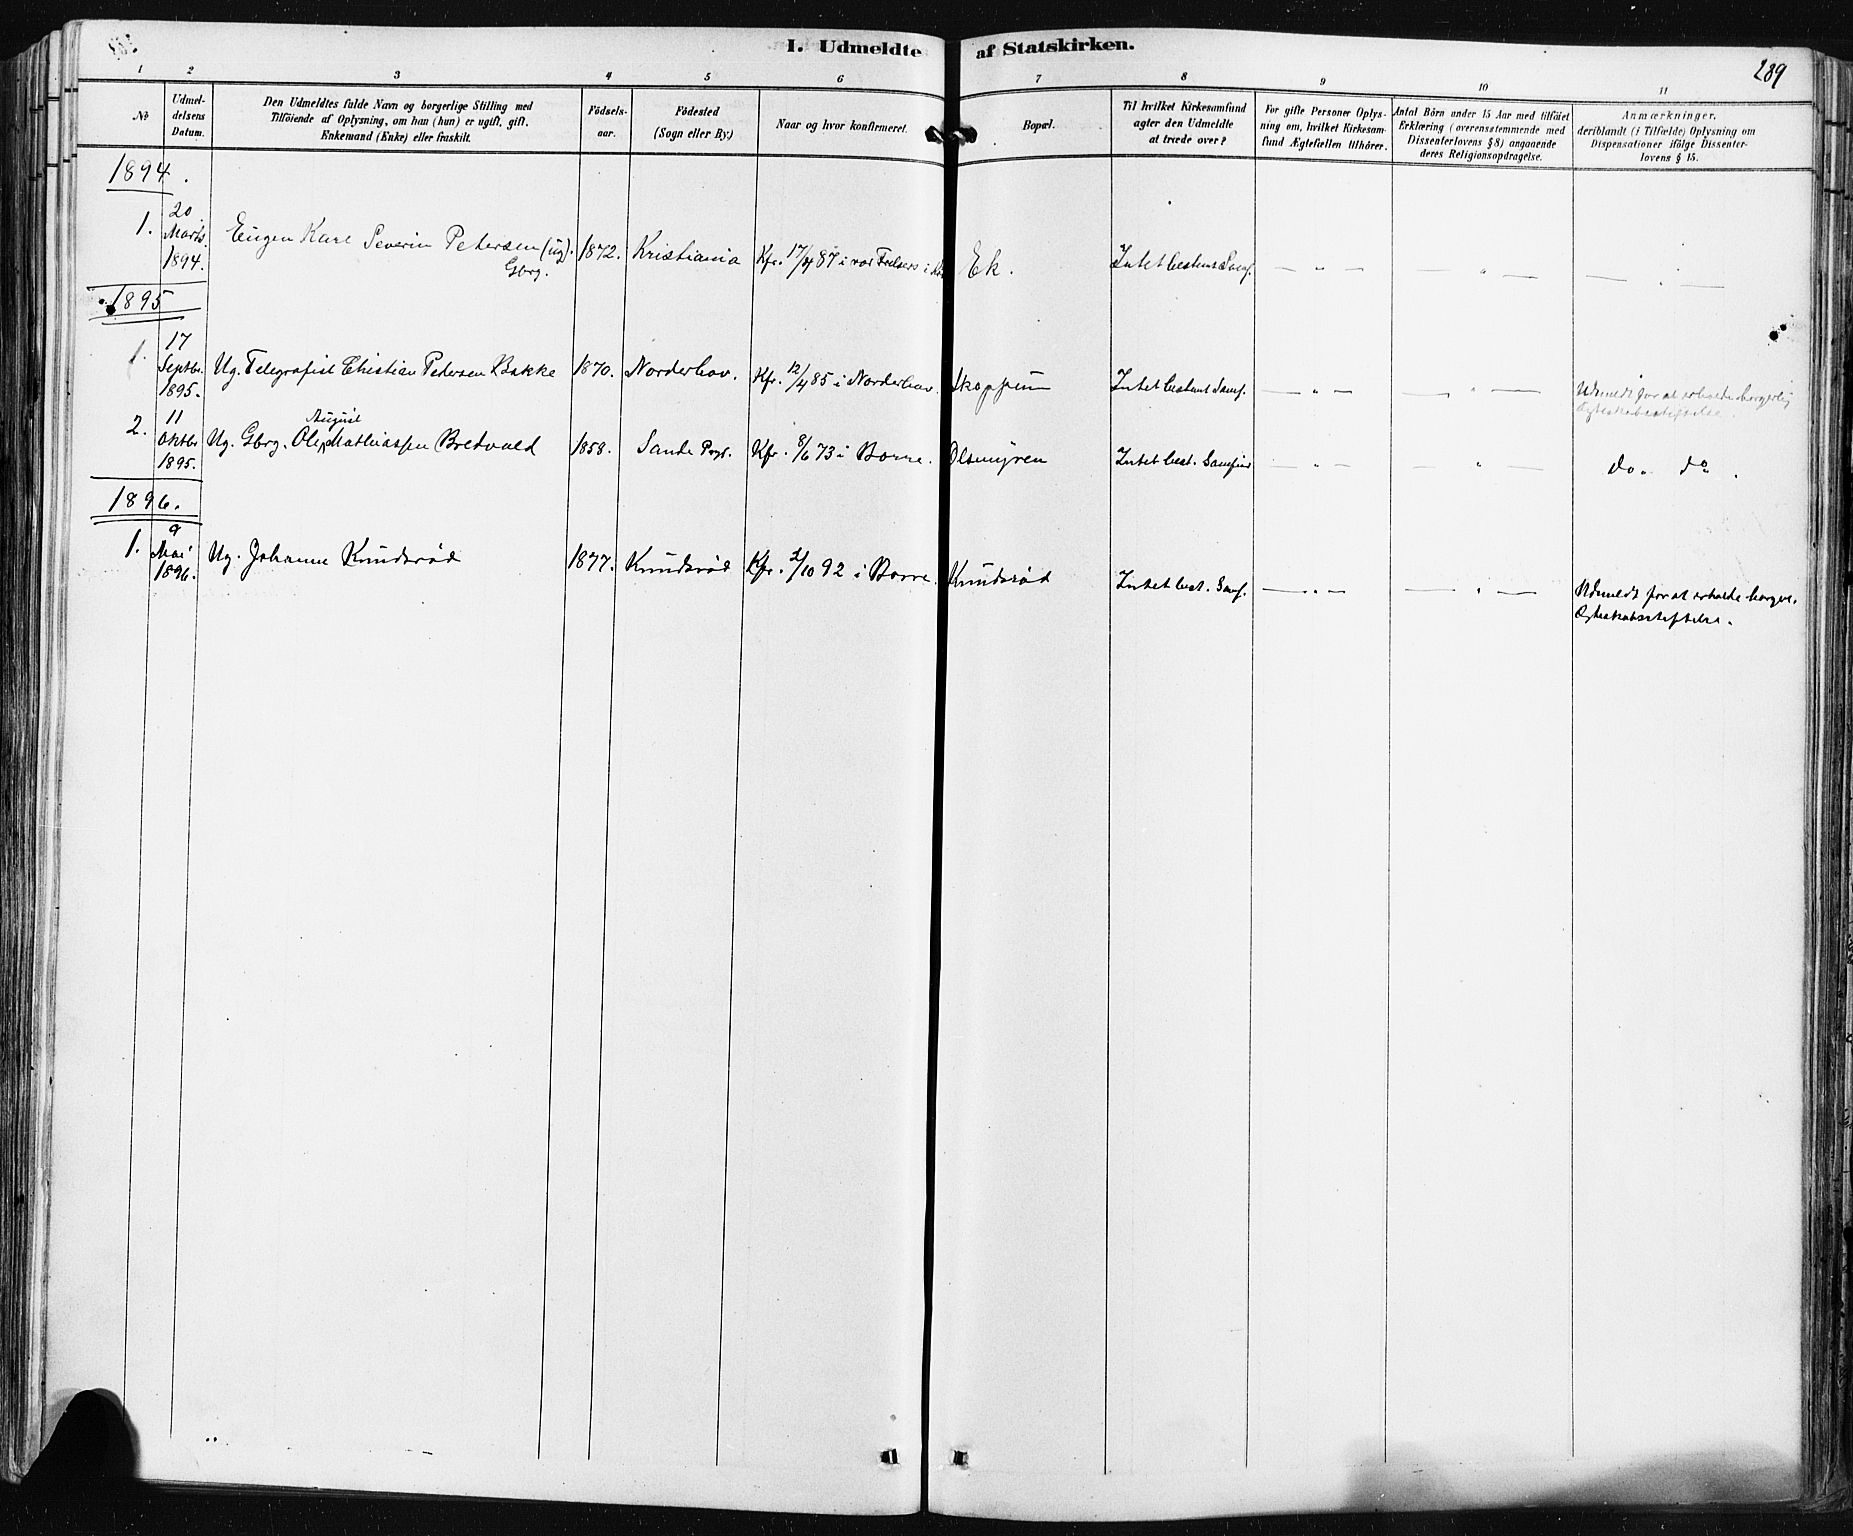 I. Udmeldte af Statskirken.
289
1 2 3 4 5 6 7 8 9 10 11
No
Udmel-
delsens
Datum.
Den Udmeldtes fulde Navn og borgerlige Stilling med
Tilföiende af Oplysning, om han (hun) er ugift, gift,
Enkemand (Enke) eller fraskilt.
Födsels-
aar.
Födested
(Sogn eller By.)
Naar og hvor konfirmeret.
Bopæl.
Til hvilket Kirkesamfund
agter den Udmeldte
at træde over?
For gifte Personer Oplys-
ning om, hvilket Kirkesam-
fund Ægtefællen tilhörer.
Antal Börn under 15 Aar med tilföiet
Erklæring (overensstemmende med
Dissenterlovens §8) angaaende
deres Religionsopdragelse.
Anmærkninger,
deriblandt (i Tilfælde) Oplysning om
Dispensationer ifölge Dissenter-
lovens § 15.
1894.
1.
20
Marts
1894.
Eugen Karl Severin Petersen (ug).
Gbrg.
1872.
Kristiania
Kfr. 17/4 87 i vor Frelsers i
Ek.
Intet bestemt Samf.
— " —
— " —
— " —
1895
1.
17
Septbr.
1895.
Ug. Telegrafist Christian Petersen Bakke
1870.
Norderhov.
Kfr. 12/4 85 i Norderhov.
Skoppum
Intet bestemt Samf.
— " —
— " —
Udmeldt for at erholde borgerlig
Ægteskabsstiftelse.
2.
11
Oktbr
1895.
August
Ug. Gbrg. Ole Mathiassen Bredvald
1858.
Sande Pgd.
Kfr. 8/6 73 i Borre.
Olsmyren
Intet best. Samfund
— " —
— " —
do. do.
1896.
1.
9
Mai
1896.
Ug. Johanne Knudsrød
1877.
Knudsrød
Kfr. 2/10 92 i Borre.
Knudsrød
Intet best. Samf.
— " —
— " —
Udmeldt for at erholde borger.
Ægteskabsstiftelse.